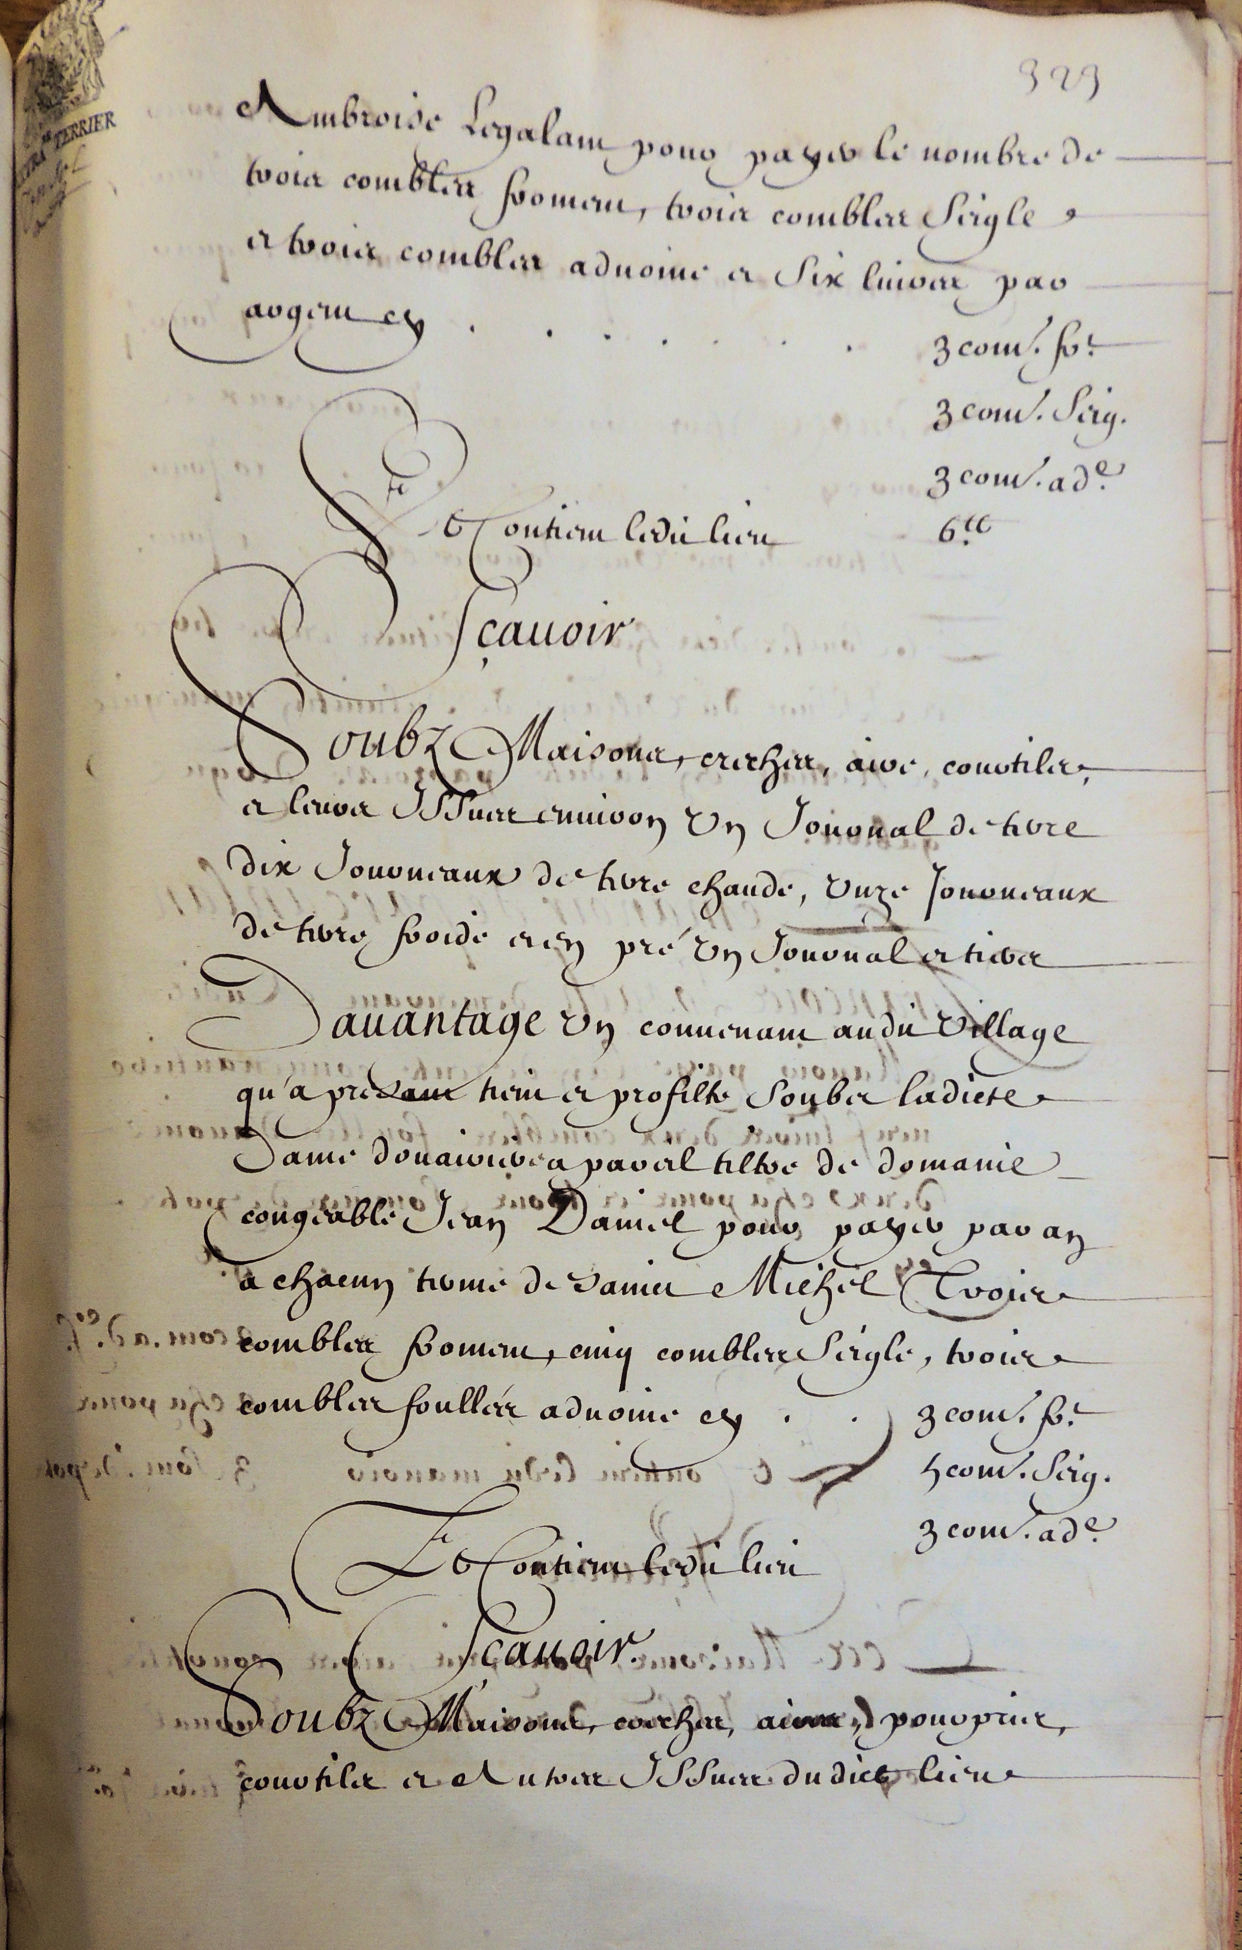 323
EXTRA DE TERRIER
Ambroise Legalam pour payer le nombre de
trois combles froment, trois combles seigle
et trois combles advoine et six livres par
argent cy . . . . . . .
3 com. fr.t
3 com. seig.
3 com. ad.e
Et Contient ledit lieu
6.tt
Sçauoir
Soubz Maisons, creches, aire, courtiles,
et leurs Issues environ Un Journal de terre
dix Journeaux de terre chaude, unze Journeaux
de terre froide et en pré Un Journal et tiers
Dauantage Un conuenant audit Village
qu'a presant tient et profitte soubs ladicte
Dame douairiere a pareil tiltre de domanie
congeable Jean Daniel pour payer par an
a chacun terme de Sainct Michel Trois
combles froment, cinq combles seigle, trois
combles foullés advoine cy . .
3 com. fr.t
5 com. seig.
3 com. ad.e
Et Contient ledit lieu
Sçauoir.
Soubz Maisons, creches, aires, pourprise,
courtiles et Autres Issues dudict lieu